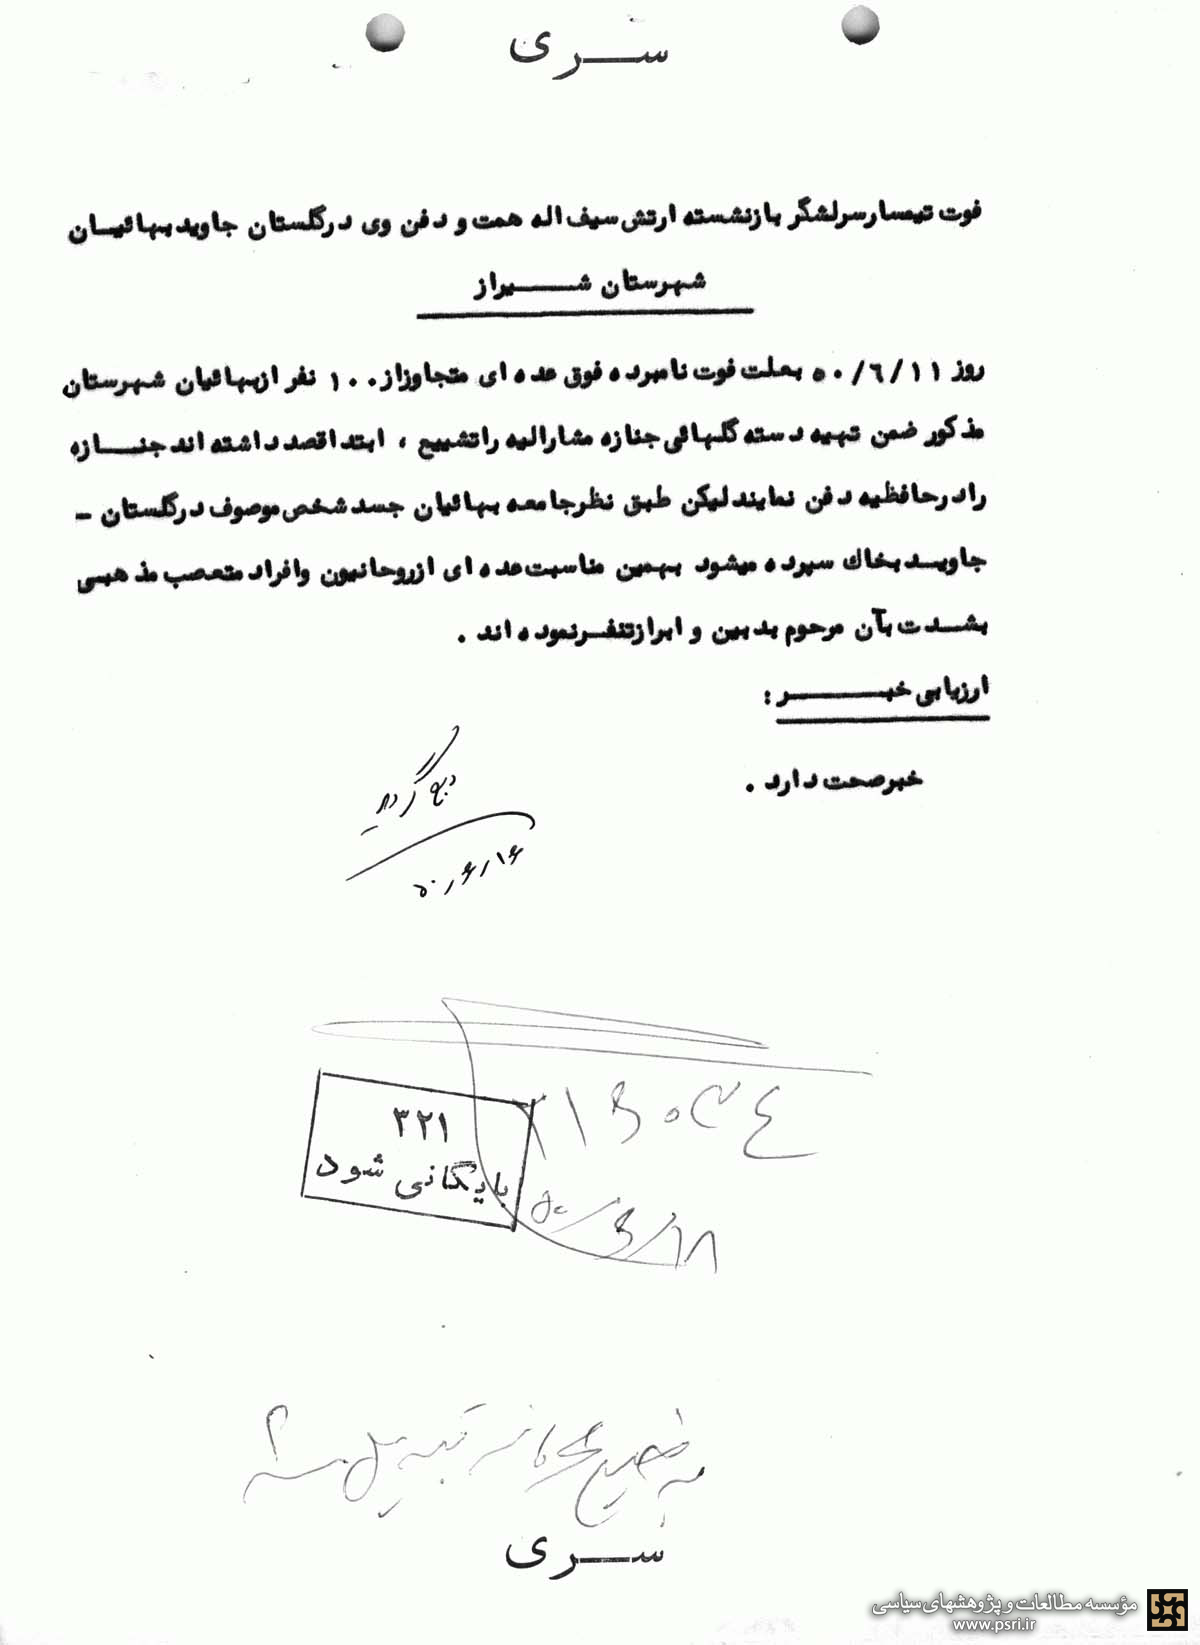 سری
فوت تیمسار سرلشگر بازنشسته ارتش سیف اله همت و دفن وی در گلستان جاوید بهائیان
شهرستان شیراز
روز ۵۰/۶/۱۱ بعلت فوت نامبرده فوق عده ای متجاوز از ۱۰۰ نفر از بهائیان شهرستان
مذکور ضمن تهیه دسته گلهائی جنازه مشارالیه را تشییع ، ابتدا قصد داشته اند جنازه
را در حافظیه دفن نمایند لیکن طبق نظر جامعه بهائیان جسد شخص موصوف در گلستان -
جاوید بخاک سپرده میشود بهمین مناسبت عده ای از روحانیون و افراد متعصب مذهبی
بشدت بآن مرحوم بدبین و ابراز تنفر نموده اند .
ارزیابی خبر :
خبر صحت دارد .
گردید
۵۰٫۶٫۱۶
۳۲۱
بایگانی شود
۵۰/۶/۱۸
سری
مؤسسه مطالعات و پژوهشهای سیاسی
www.psri.ir